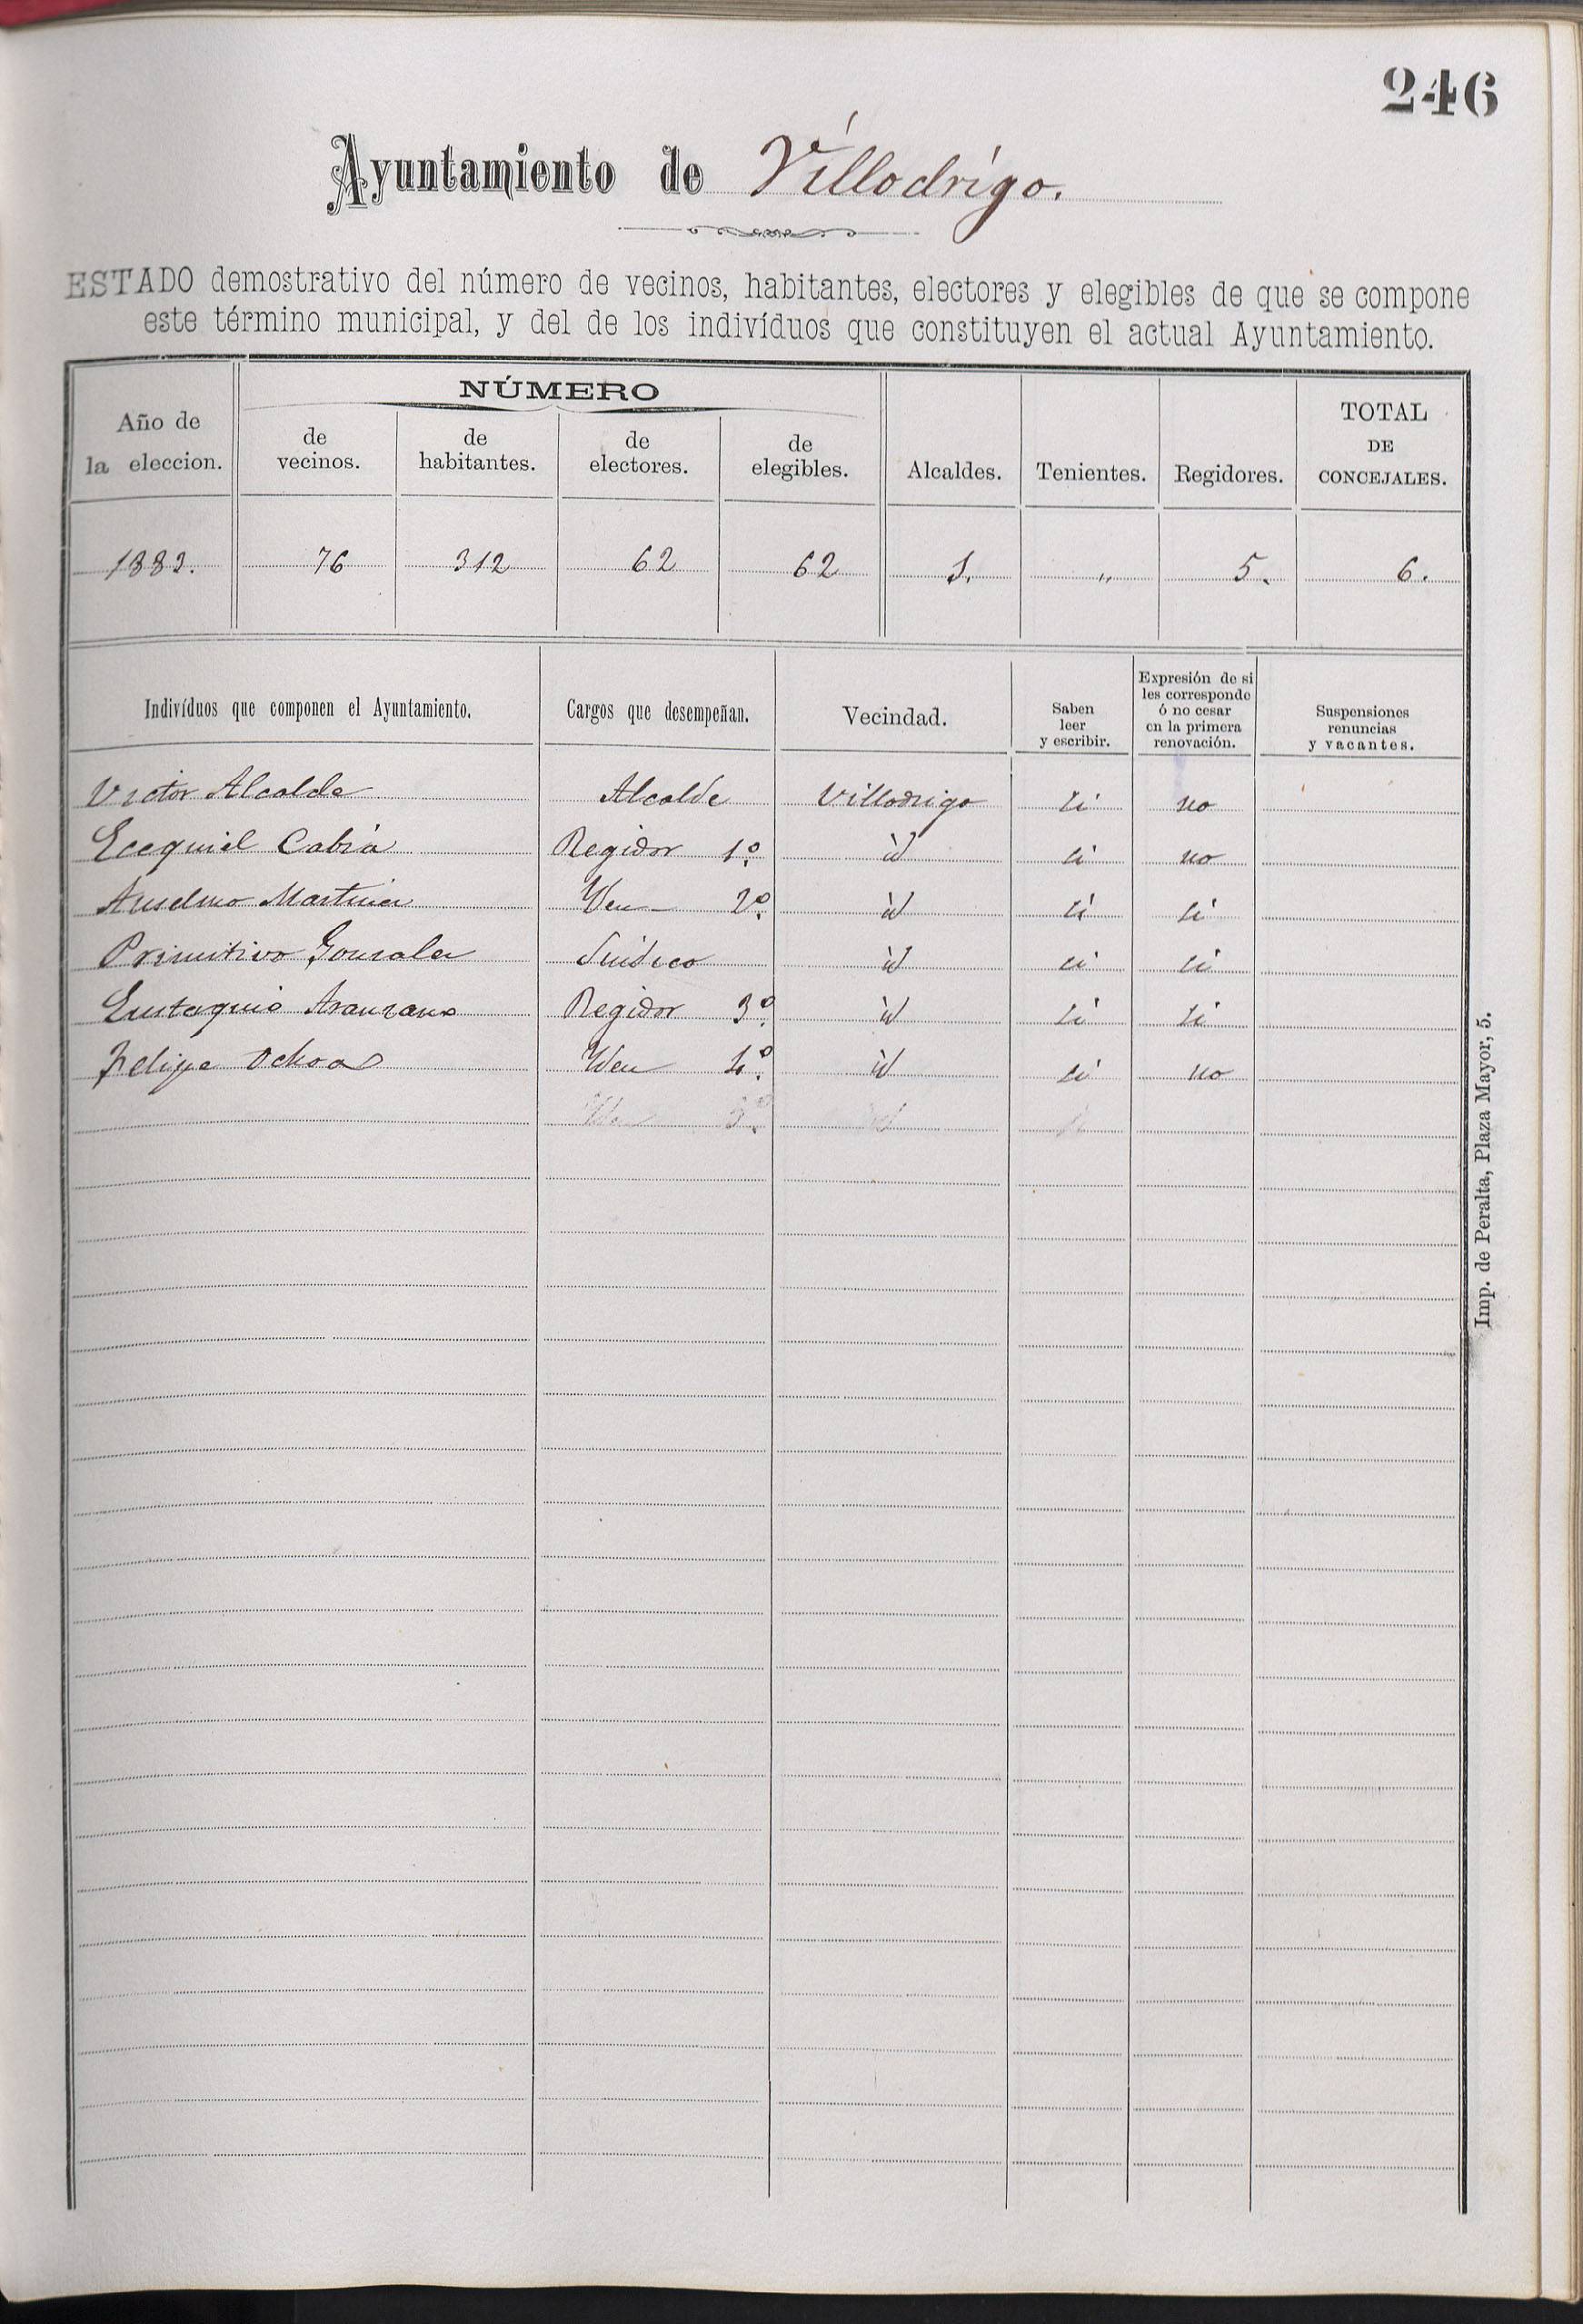 246
Ayuntamiento de Villodrigo.
ESTADO demostrativo del número de vecinos, habitantes, electores y elegibles de que se compone
este término municipal, y del de los indivíduos que constituyen el actual Ayuntamiento.
Año de la eleccion. NÚMERO de vecinos. de habitantes. de electores. de elegibles. Alcaldes. Tenientes. Regidores. TOTAL DE CONCEJALES.
1883. 76 312 62 62 1. " 5. 6.
Indivíduos que componen el Ayuntamiento. Cargos que desempeñan. Vecindad. Saben leer y escribir. Expresión de si les corresponde ó no cesar en la primera renovación. Suspensiones renuncias y vacantes.
Victor Alcalde Alcalde Villodrigo si no
Ecequiel Cabia Regidor 1º id si no
Anselmo Martinez Idem 2º id si si
Primitivo Gonzalez Sindico id si si
Eustaquio Aranzana Regidor 3º id si si
Felipe Ochoa Idem 4º id si no
Imp. de Peralta, Plaza Mayor, 5.